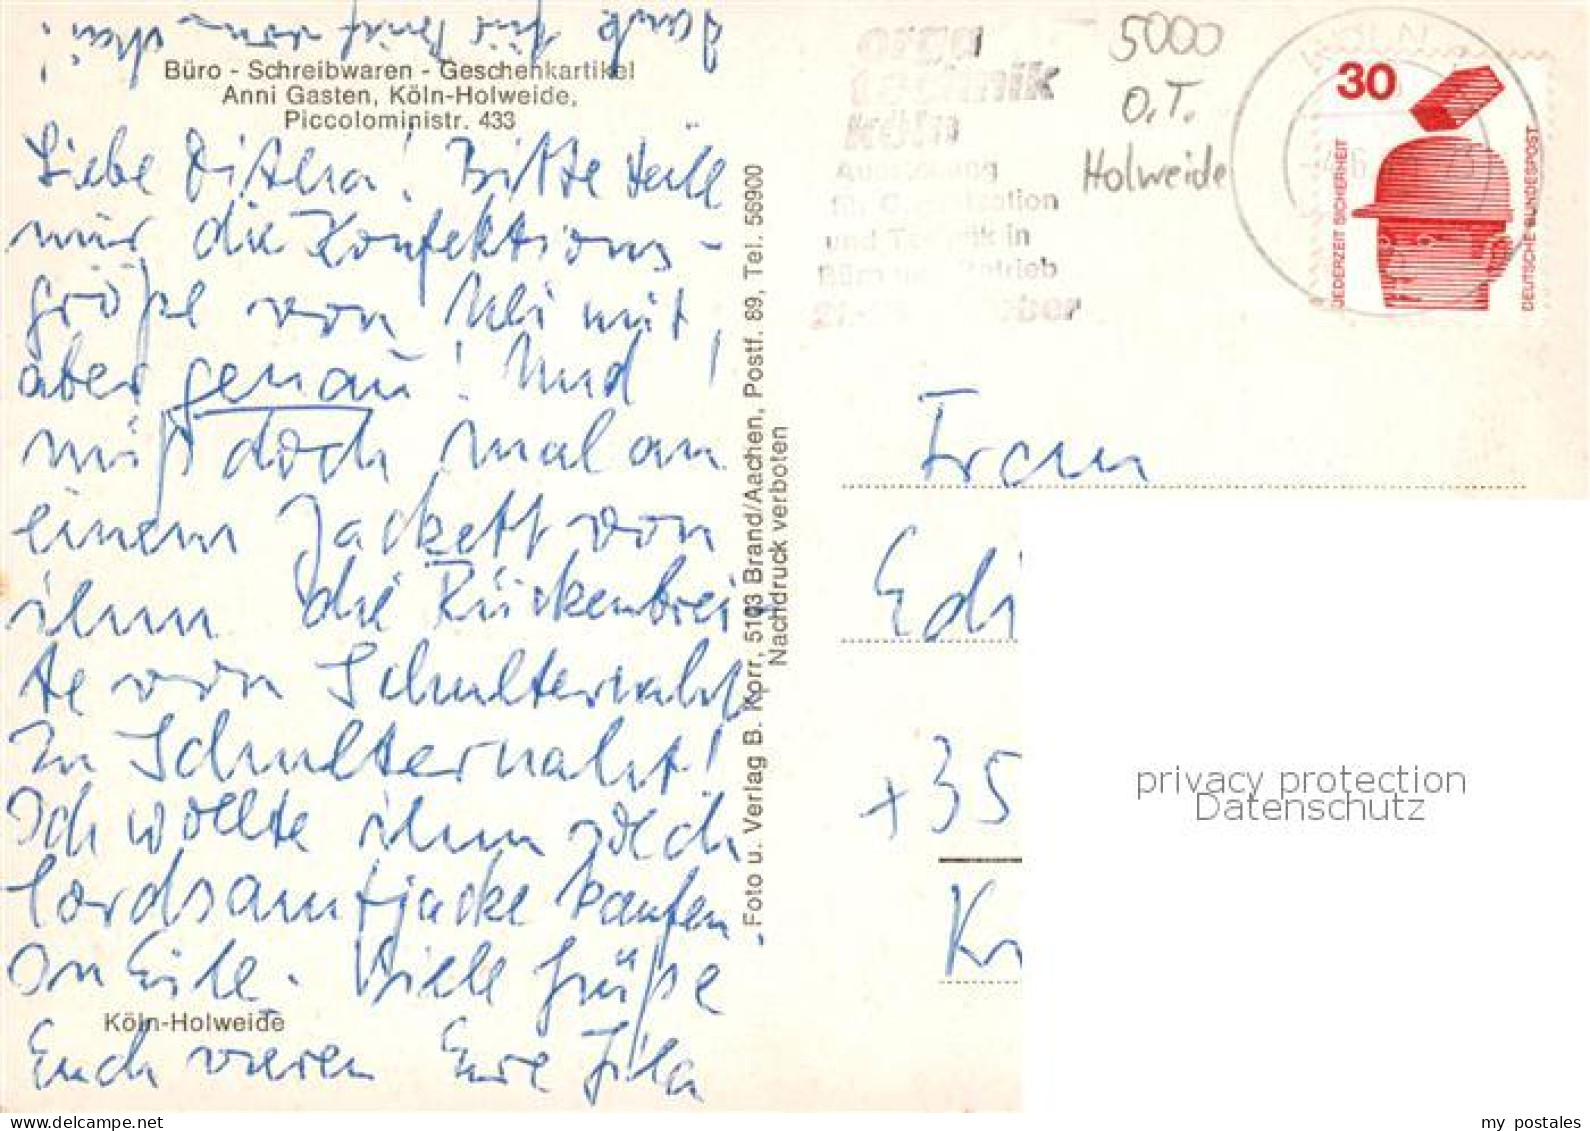 Dank für Brief von
Büro - Schreibwaren - Geschenkartikel
Anni Gasten, Köln-Holweide,
Piccoloministr. 433
Liebe Editha! Bitte teile
mir die Konfektions-
größe von Uli mit,
aber genau! Und!
miß doch mal an
einem Jackett von
ihm die Rückenbrei-
te von Schulternaht
zu Schulternaht!
Ich wollte ihm solch
Cordsamtjacke kaufen
In Eile. Viele Grüße
Köln-Holweide
Euch vieren Eure
Foto u. Verlag B. Korr, 5103 Brand/Aachen, Postf. 89, Tel. 56900
Nachdruck verboten
orga
technik
köln
Ausstellung
für Organisation
und Technik in
Büro und Betrieb
5000
O.T.
Holweide
30
JEDERZEIT SICHERHEIT
DEUTSCHE BUNDESPOST
Frau
Edi
+35
Kr
privacy protection
Datenschutz
my postales